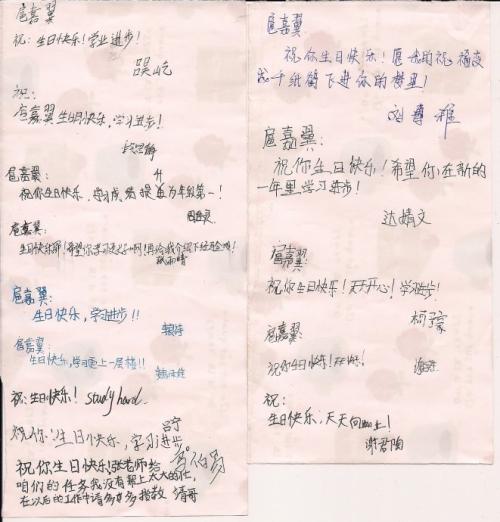 扈嘉翼
祝：生日快乐！学业进步！
吴屹
祝：
扈嘉翼生日快乐，学习进步！
扈嘉翼：
祝你生日快乐，学习成绩提升为年级第一！
扈嘉翼：
生日快乐
扈嘉翼：
生日快乐，学习进步！！
扈嘉翼：
生日快乐，学习更上一层楼！！
祝：生日快乐！study hard.
吕宁
祝你：生日快乐，学习进步。
祝你生日快乐！张老师给
咱们的任务我没有帮上太大的忙，
在以后的工作中请多多指教 清哥
扈嘉翼
祝你生日快乐！愿我的祝福变
成千纸鹤飞进你的梦里！
扈嘉翼：
祝你生日快乐！希望你在新的
一年里学习进步！
达婧文
扈嘉翼：
祝你生日快乐！天天开心！学习进步！
柯子豪
扈嘉翼：
祝你生日快乐！天天快乐！
祝：
生日快乐，天天向上！
谢君陶